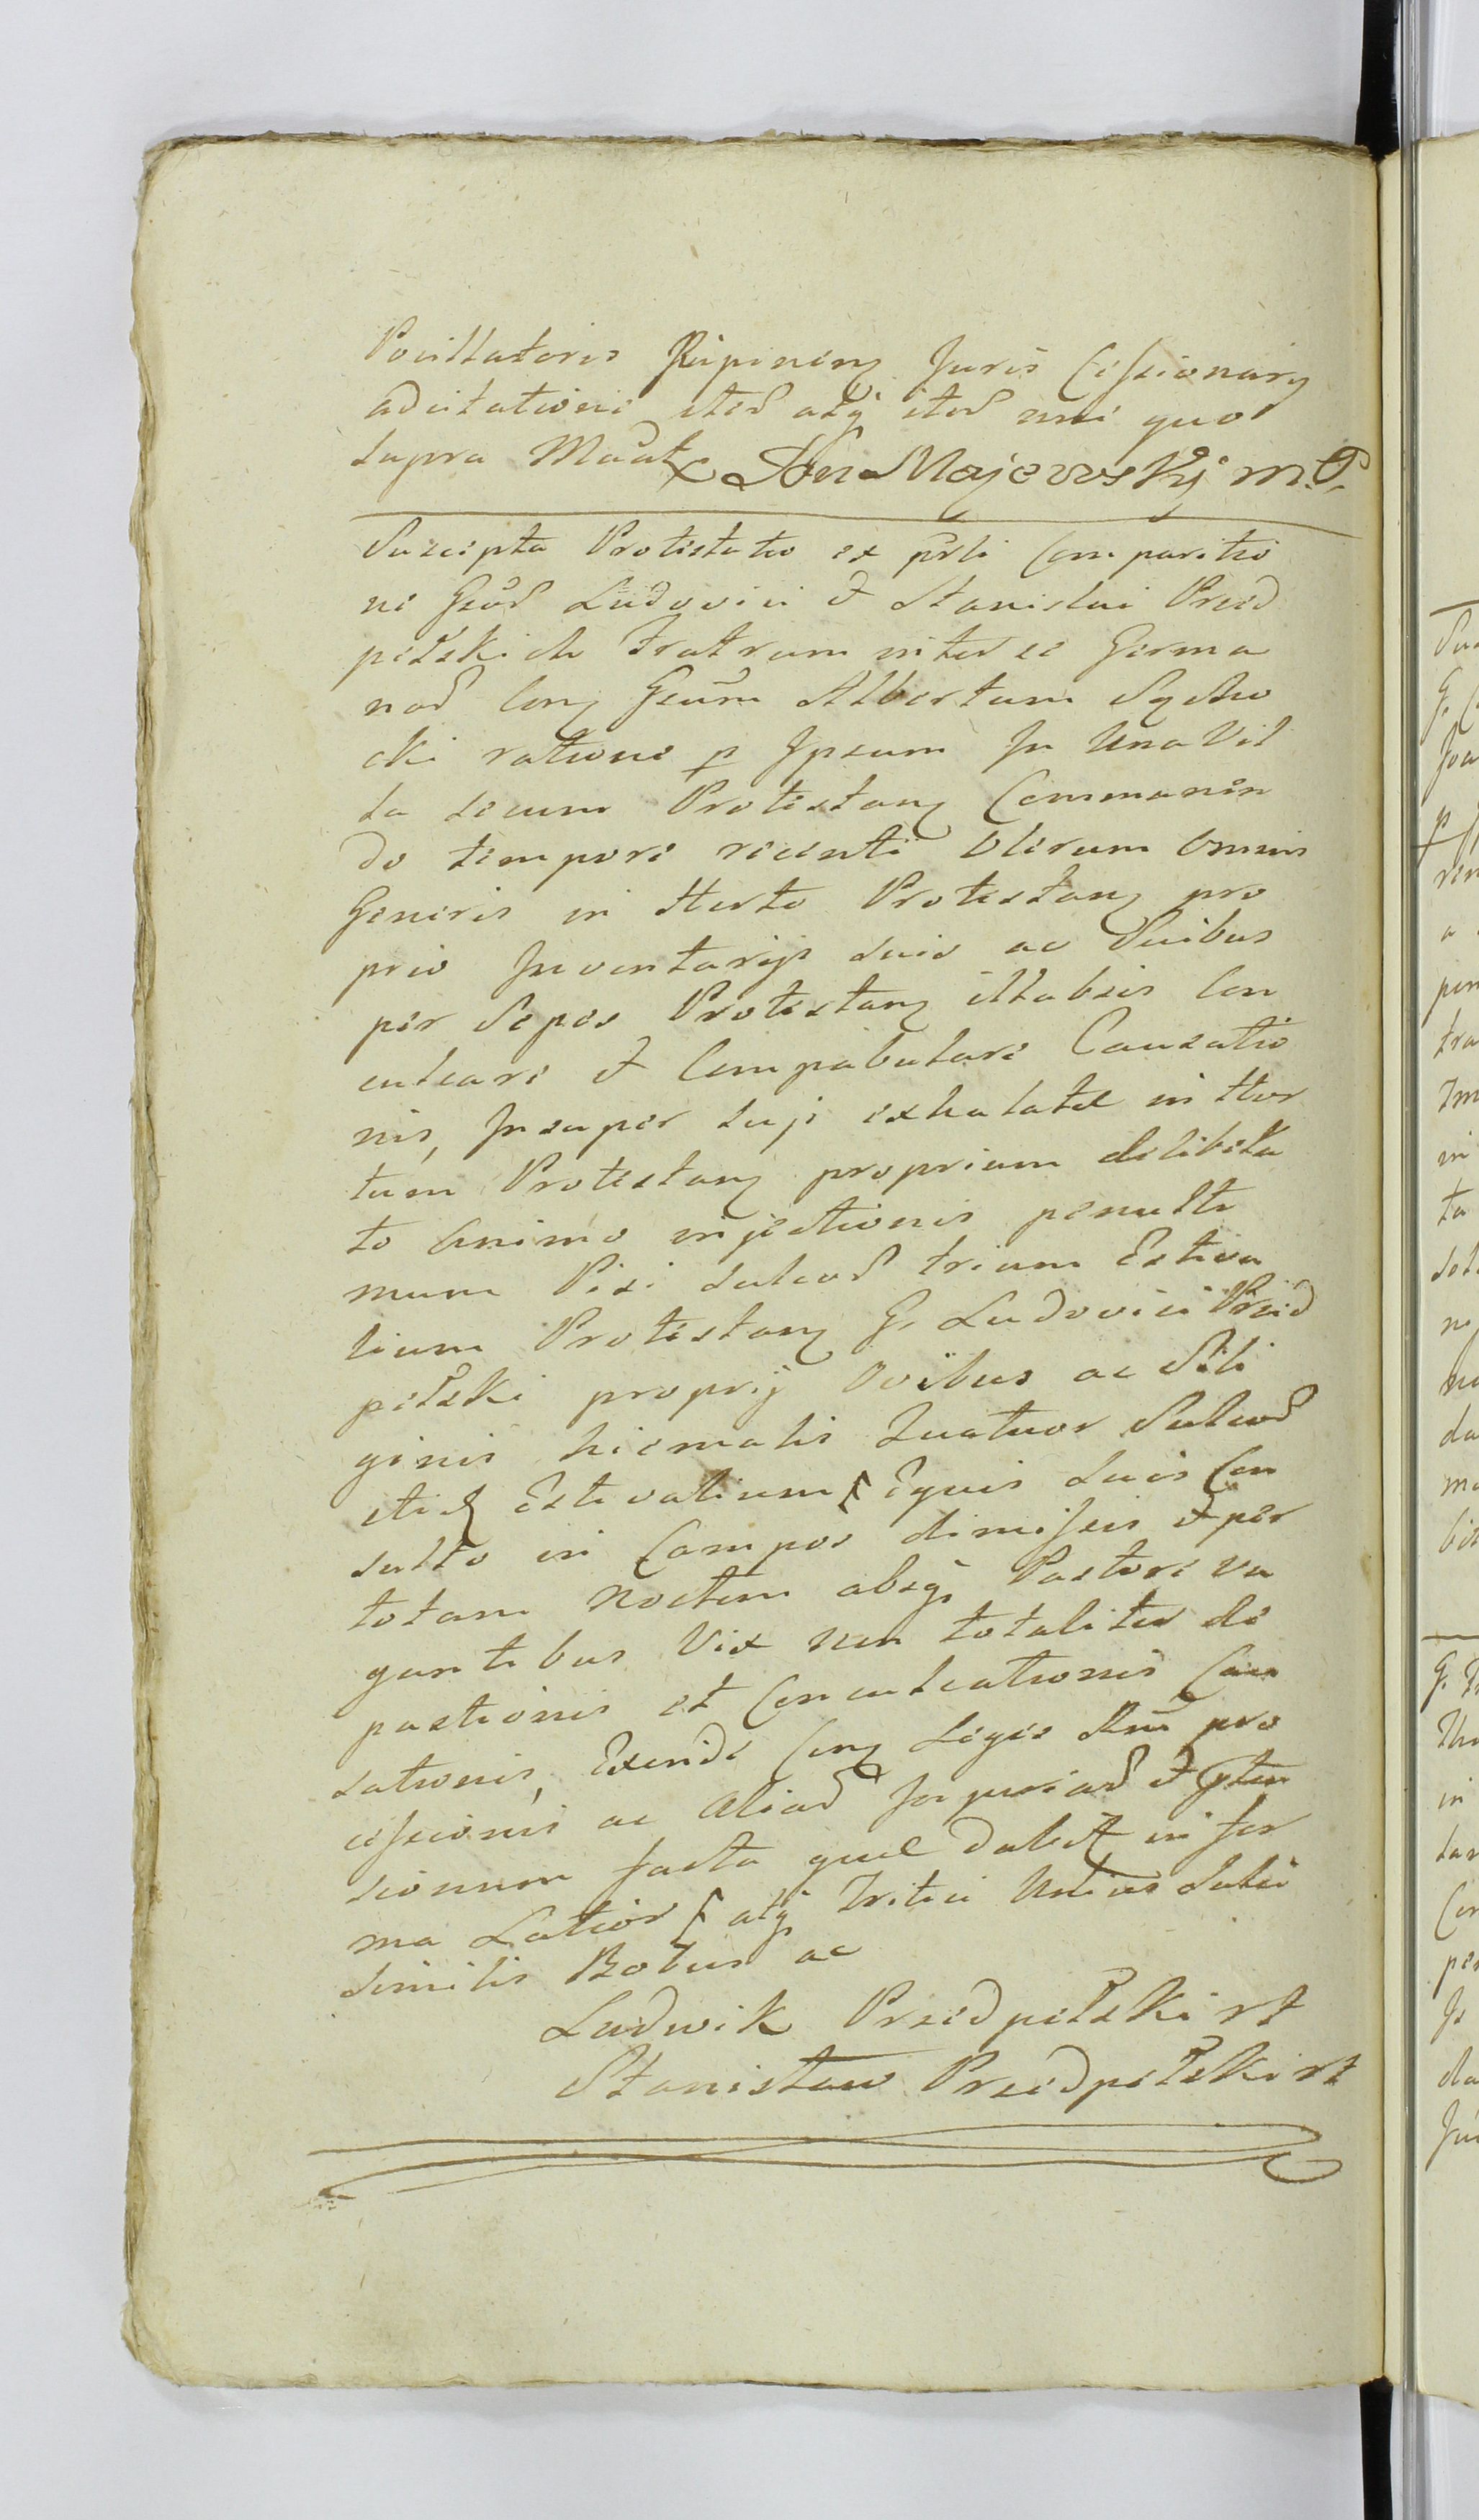 Pocillatoris Juris Cessionarÿ
ad citationem atq uti quo
supra Jan Majewsky m.P.
Suscepta Protestatio ex prli Comparitio
ne Gsod Ludovici et Stanislai Przed
pełskich Fratrum inter se Germa
nod Con Gsum Albertum Sycho
cki ratione p Ipsum In Una Vil
la secum Protestan Commanen
do tempore recenti Olerum Omnis
Generis in Horto Protestan pro
prio Juventarijs suis ac Suibus
per Sepes Protestan illabsis Con
culcari et Compabulari Causatio
nis, Insuper suji exhalatæ in Hor
tum Protestan proprium delibera
to Animo injectionis penulti
mum Pisi sulcod trium Estiva
lium Protestan G. Ludovici Przed
pełski proprÿ Ovibus ac Sili
ginis hiemalis Quatuor Sulcod
itid Estivalium Equis suis Con
sulto in Campos dimissis et per
totam Noctem absq Pastore va
gantibus Vix non totaliter de
pastionis et Conculcationis Cau
sationis, Exinde Con Leges Rni pro
cessionis ac Aliad Injuriad et
sionum facta quæ dabit in for
ma Latior atq Tritici Unius Sulci
similis Bobus ac
Ludwik Przedpełski rt
Stanisław Przedpełski rt